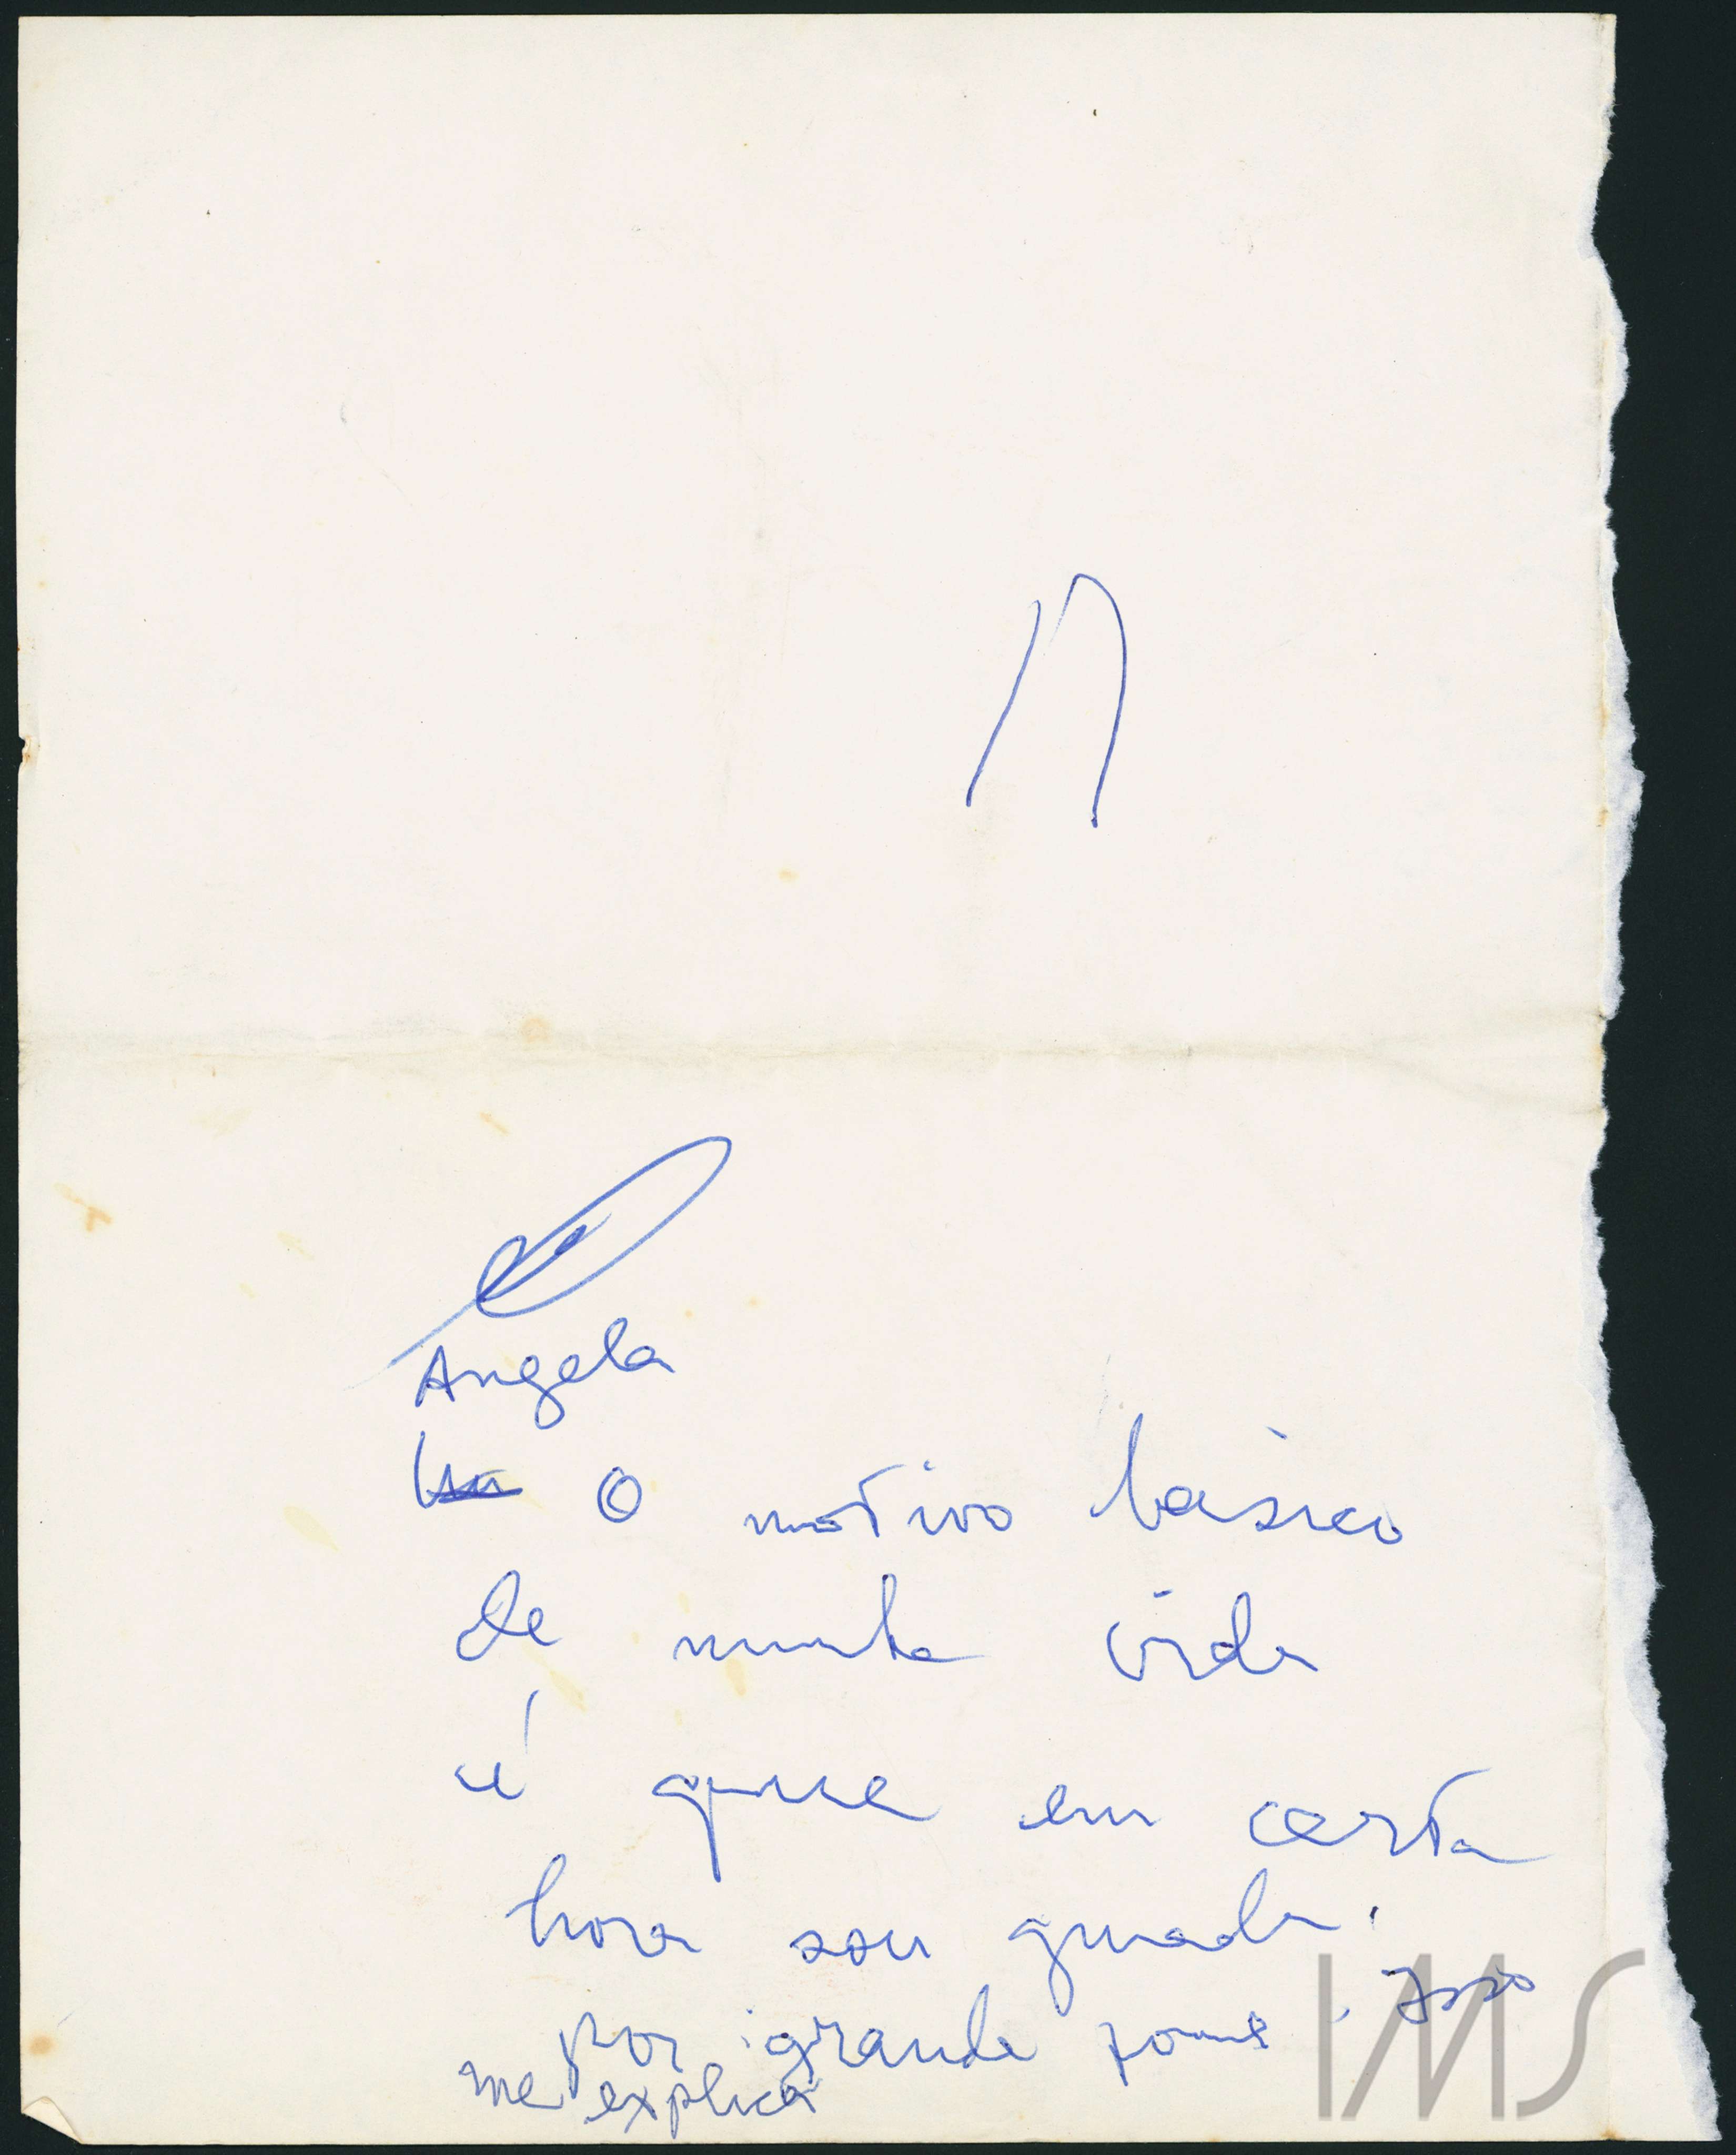 Angela
O motivo básico
de minha vida
é que em certa
hora sou guiada
por grande fome. Isso
me explica
IMS